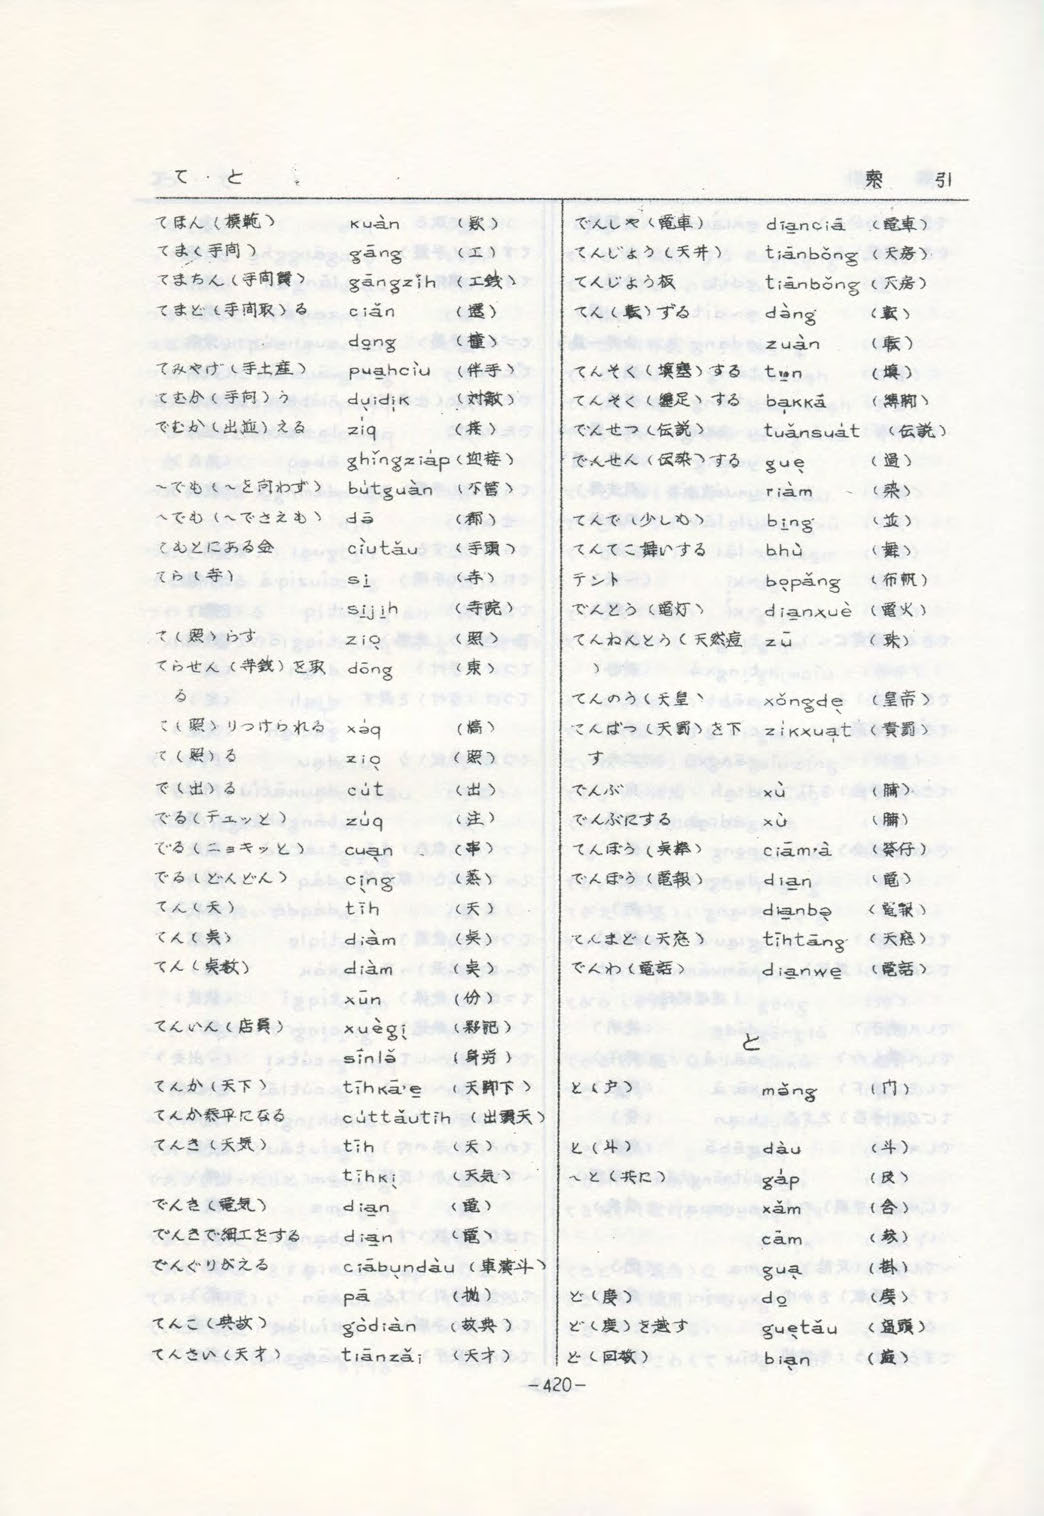 て・と
索引
てほん（模範） kuàn （款）
てま（手間） gāng （工）
てまちん（手間賃） gāngzíh （工銭）
てまど（手間取）る ciǎn （遷）
dong （憧）
てみやげ（手土産） puahcìu （伴手）
てむか（手向）う duidik （対敵）
でむか（出迎）える ziq （接）
ghǐngziáp （迎接）
～でも（～を问わず） bútguàn （不管）
～でも（～でさえも） dā （都）
てもとにある金 cìutǎu （手頭）
てら（寺） si （寺）
sijih （寺院）
て（照）らす zio （照）
てらせん（寺銭）を取る dōng （東）
て（照）りつけられる xáq （熇）
て（照）る zio （照）
で（出）る cút （出）
でる（チュッと） zúq （注）
でる（ニョキッと） cuan （串）
でる（どんどん） cing （蒸）
てん（天） tīh （天）
てん（点） diàm （点）
てん（点数） diàm （点）
xūn （份）
てんいん（店員） xuègi （夥記）
sīnlǎ （身労）
てんか（天下） tīhkā'e （天脚下）
てんか泰平になる cúttǎutīh （出頭天）
てんき（天気） tīh （天）
tīhki （天気）
でんき（電気） dian （電）
でんきで細工をする dian （電）
でんぐりがえる ciābundàu （車湳斗）
pā （抛）
てんこ（典故） gòdiàn （故典）
てんさい（天才） tiānzǎi （天才）
でんしや（電車） dianciā （電車）
てんじょう（天井） tiānbǒng （天房）
てんじょう板 tiānbǒng （天房）
てん（転）ずる dàng （転）
zuàn （転）
てんそく（填塞）する tun （填）
てんそく（纏足）する bakkā （縛脚）
でんせつ（伝説） tuǎnsuát （伝説）
でんせん（伝染）する gue （過）
riàm （染）
てんで（少しも） bing （並）
てんてこ舞いする bhù （舞）
テント bopǎng （布帆）
でんとう（電灯） dianxuè （電火）
てんねんとう（天然痘） zū （珠）
てんのう（天皇） xǒngde （皇帝）
てんばつ（天罰）を下す zíkxuat （責罰）
でんぶ xù （脯）
でんぶにする xù （脯）
てんぽう ciām'à （簽仔）
でんぽう（電報） dian （電）
dianbo （電報）
てんまど（天窓） tīhtāng （天窓）
でんわ（電話） dianwe （電話）
と
と（戸） mǎng （门）
と（斗） dàu （斗）
～と（共に） gáp （及）
xǎm （含）
cām （参）
gua （掛）
ど（度） do （度）
ど（度）を越す guetǎu （過頭）
ど（回数） bian
－420－